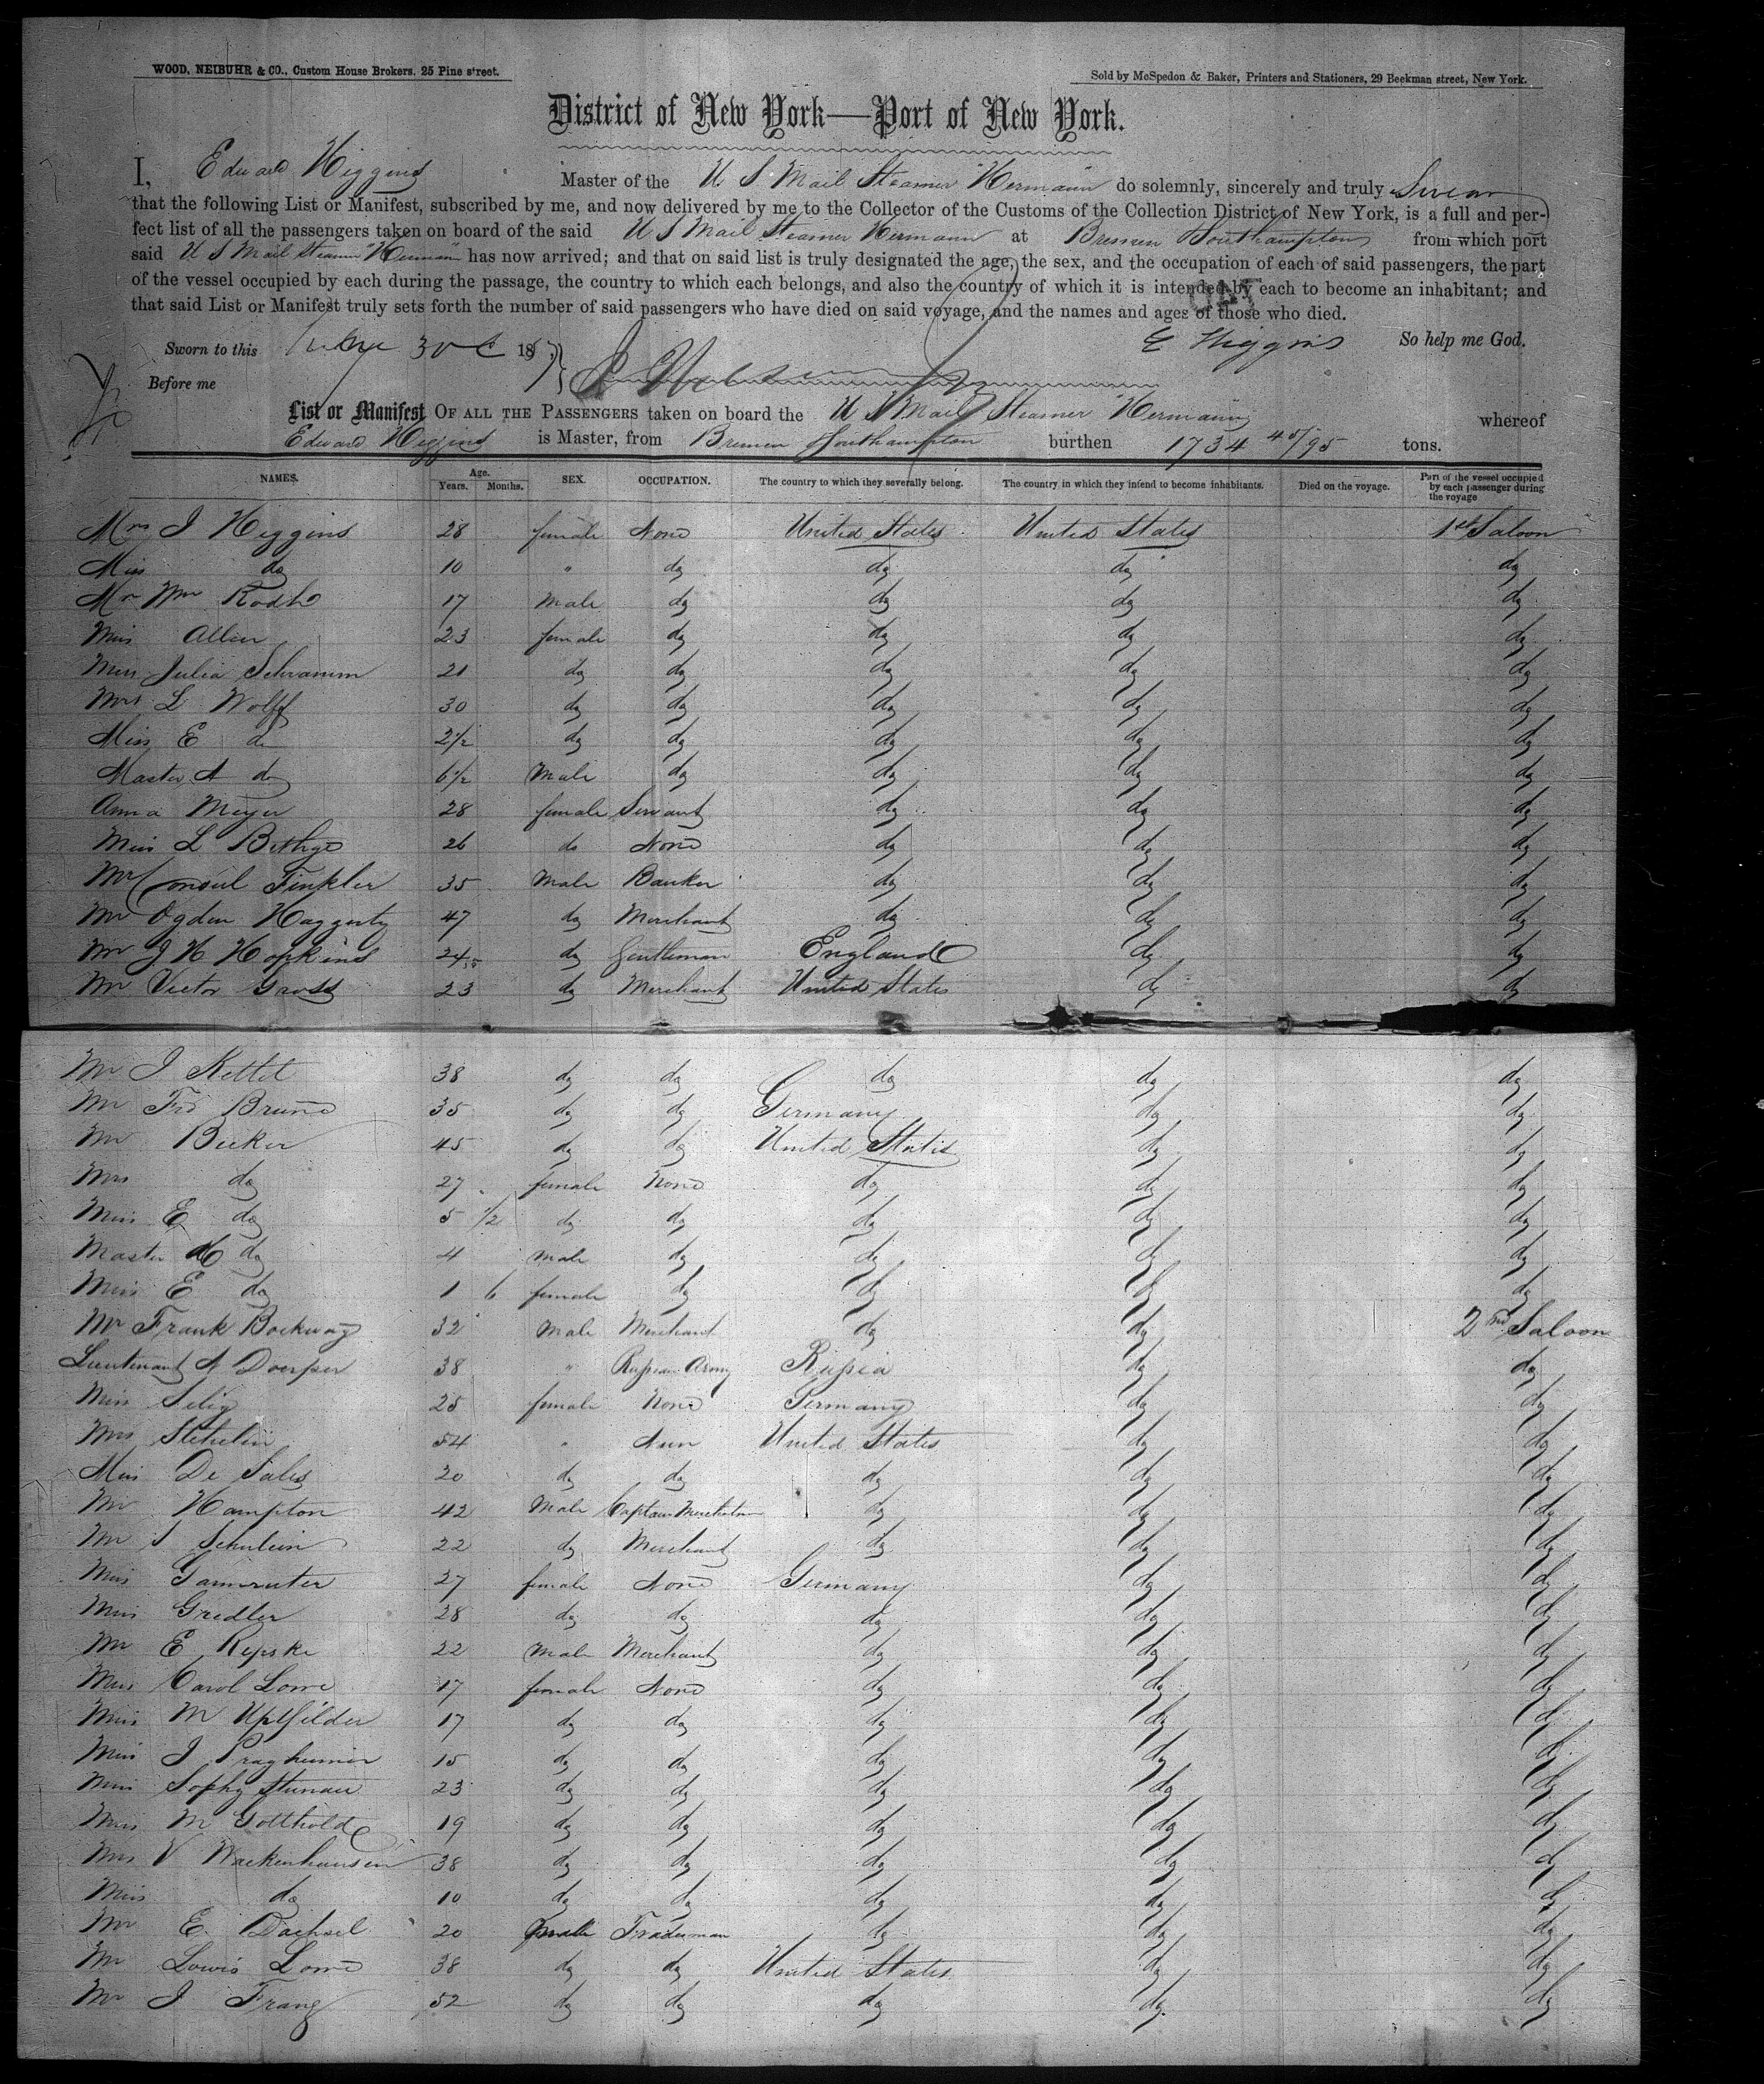 WOOD, NEIBUHR & CO., Custom House Brokers. 25 Pine street.
Sold by McSpedon & Baker, Printers and Stationers, 29 Beekman street, New York.
District of New York—Port of New York.
I, Edward Higgins Master of the U. S. Mail Steamer "Hermann" do solemnly, sincerely and truly Swear
that the following List or Manifest, subscribed by me, and now delivered by me to the Collector of the Customs of the Collection District of New York, is a full and per-
fect list of all the passengers taken on board of the said U S Mail Steamer Hermann at Bremen Southampton from which port
said U S Mail Steamer "Hermann" has now arrived; and that on said list is truly designated the age, the sex, and the occupation of each of said passengers, the part
of the vessel occupied by each during the passage, the country to which each belongs, and also the country of which it is intended by each to become an inhabitant; and
that said List or Manifest truly sets forth the number of said passengers who have died on said voyage, and the names and ages of those who died.
Sworn to this June 30 185 E Higgins So help me God.
Before me
List or Manifest OF ALL THE PASSENGERS taken on board the U S Mail Steamer "Hermann" whereof
Edward Higgins is Master, from Bremen Southampton burthen 1734 45/95 tons.
NAMES. Age. Years. Months. SEX. OCCUPATION. The country to which they severally belong. The country in which they intend to become inhabitants. Died on the voyage. Part of the vessel occupied by each passenger during the voyage
Mrs J Higgins 28 female None United States United States 1st Saloon
Miss do 10 " do do do do
Mr Wm Rodh 17 Male do do do do
Miss Allen 23 female do do do do
Miss Julia Schramm 21 do do do do do
Mrs L Wolff 30 do do do do do
Miss E do 2 1/2 do do do do do
Master A do 6 1/2 Male do do do do
Anna Meyer 28 female Servant do do do
Miss L Bethge 26 do None do do do
Mr Consul Finkler 35 Male Banker do do do
Mr Ogden Haggerty 47 do Merchant do do do
Mr J H Hopkins 24 do Gentleman England do do
Mr Victor Gross 23 do Merchant United States do do
Mr J Kettet 38 do do do do do
Mr Fr Bruno 35 do do Germany do do
Mr Becker 45 do do United States do do
Mrs do 27 female None do do do
Miss E do 5 1/2 do do do do do
Master do 4 male do do do do
Miss E do 1 6 female do do do do
Mr Frank Bockway 32 Male Merchant do do 2nd Saloon
Lieutenant A Doerper 38 " Russian Army Russia do do
Miss Selig 25 female None Germany do do
Mrs Stehelin 54 " Nun United States do do
Miss De Sales 20 do do do do do
Mr Hampton 42 Male Captain do do do
Mr S Schulein 22 do Merchant do do do
Miss 27 female None Germany do do
Miss Gredler 28 do do do do do
Mr E Repske 22 male Merchant do do do
Miss Carol Lowe 17 female None do do do
Miss M Uplfilder 17 do do do do do
Miss J Pragheimer 15 do do do do do
Miss Sophy 23 do do do do do
Miss M Gotthold 19 do do do do do
Mrs V Wackenhausen 38 do do do do do
Miss do 10 do do do do do
Mr E. Dachsel 20 male Tradesman do do do
Mr Lowis Lowe 38 do do United States do do
Mr J Frang 52 do do do do do